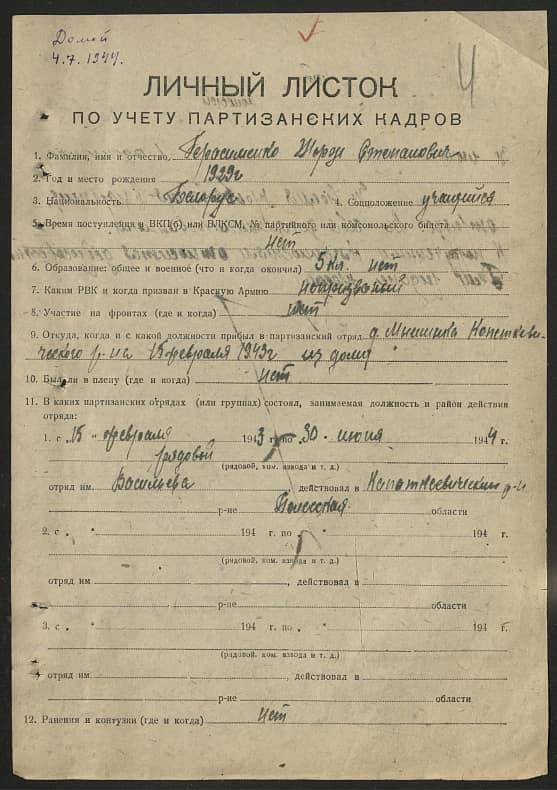 Домой
4.7.1944.
4
ЛИЧНЫЙ ЛИСТОК
ПО УЧЕТУ ПАРТИЗАНСКИХ КАДРОВ
1. Фамилия, имя и отчество Герасименко Степанович
2. Год и место рождения 1929г
3. Национальность Белорус 4. Соцположение учащийся
5. Время поступления в ВКП(б) или ВЛКСМ, № партийного или комсомольского билета
Нет
6. Образование: общее и военное (что и когда окончил) 5 кл. нет
7. Каким РВК и когда призван в Красную Армию непризваный
8. Участие на фронтах (где и когда) нет
9. Откуда, когда и с какой должности прибыл в партизанский отряд д. Копаткеви-
ческого р-на 15 февраля 1943г из дому
10. Был ли в плену (где и когда) Нет
11. В каких партизанских отрядах (или группах) состоял, занимаемая должность и район действия
отряда:
1. с „ 15 “ февраля 1943 г. по „ 30 “ июня 1944 г.
рядовой
(рядовой, ком. взвода и т. д.)
отряд им. Васильева, действовал в Копаткевическим р-н
р-не Полесская области
2. с „ “ 194 г. по „ “ 194 г.
(рядовой, ком. взвода и т. д.)
отряд им , действовал в
р-не области
3. с „ “ 194 г. по „ “ 194 г.
(рядовой, ком. взвода и т. д.)
отряд им , действовал в
р-не области
12. Ранения и контузии (где и когда) Нет